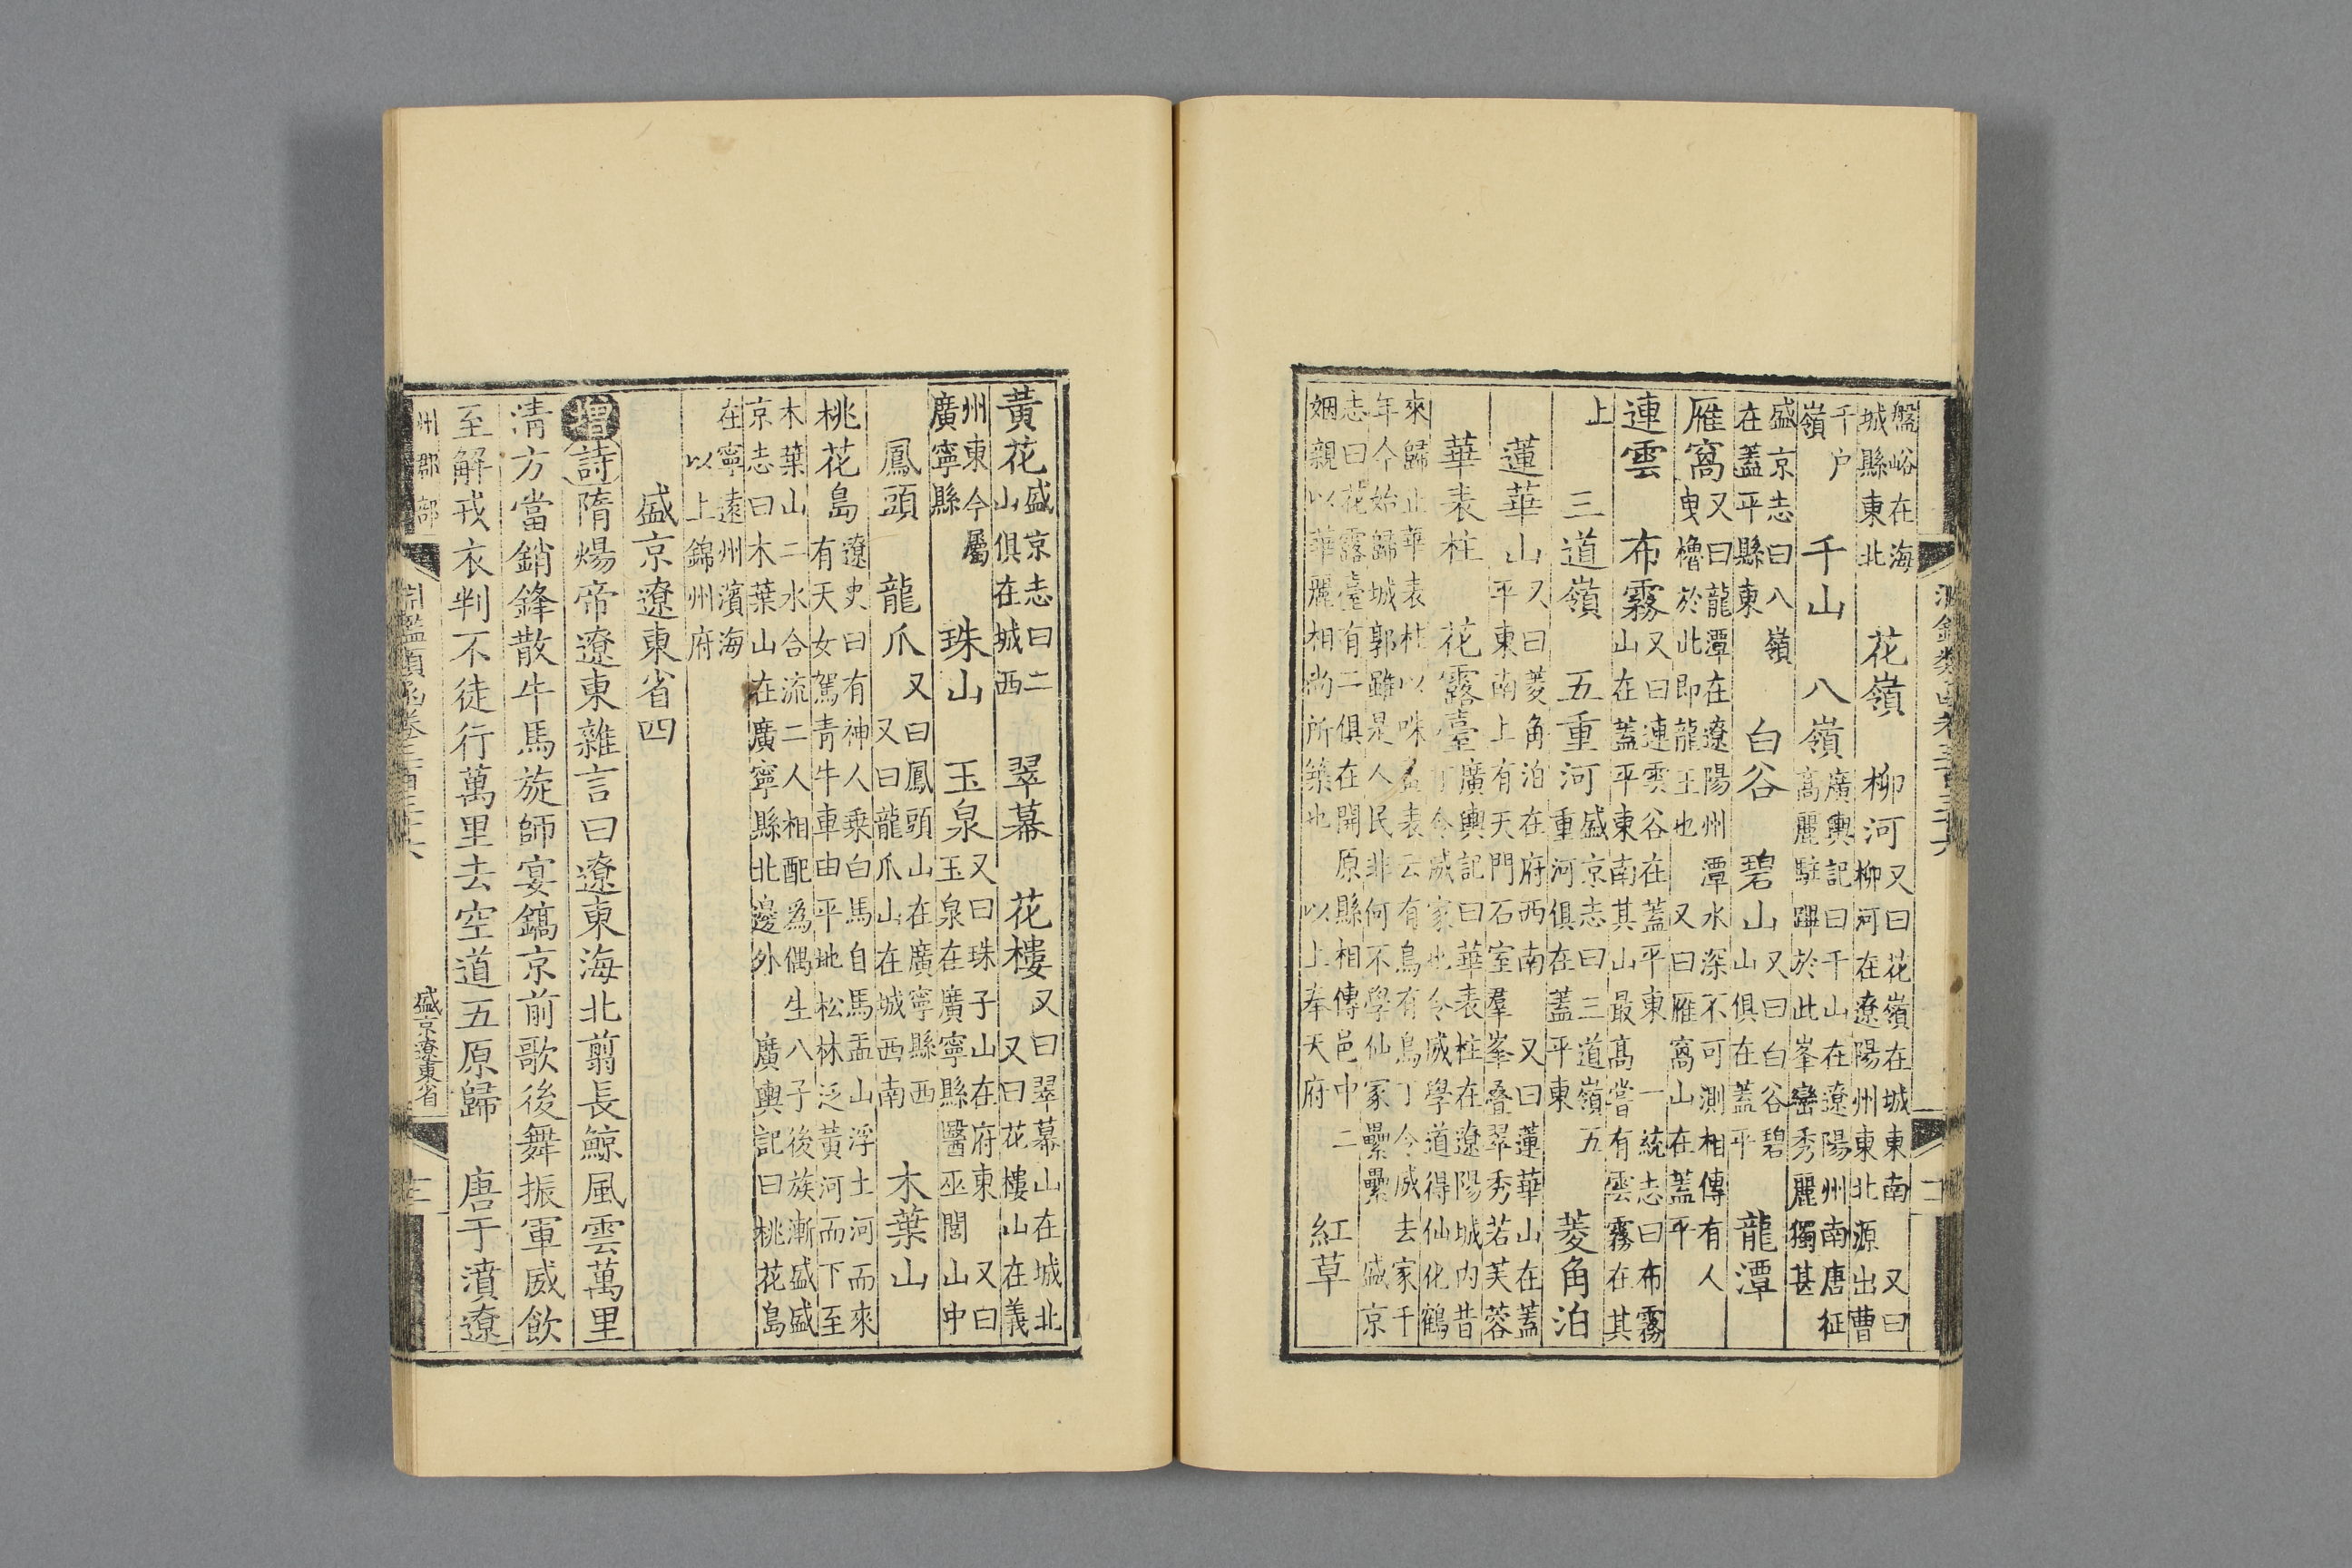 淵鑑類函卷三百三十六
盤峪在海城縣東北 花嶺 柳河 又曰花嶺在城東南 又曰柳河在遼陽州東北源出曹
千户嶺 千山 八嶺 廣輿記曰千山在遼陽州南唐征高麗駐蹕於此峯巒秀麗獨甚
盛京志曰八嶺在蓋平縣東 白谷 碧山 又曰白谷碧山俱在蓋平 龍潭
雁窩 又曰龍潭在遼陽州潭水深不可測相傳有人曳櫓於此即龍王也 又曰雁窩山在蓋平
連雲 布霧 又曰連雲谷在蓋平東 一統志曰布霧山在蓋平東南其山最高嘗有雲霧在其
上 三道嶺 五重河 盛京志曰三道嶺五重河俱在蓋平東 菱角泊
蓮華山 又曰菱角泊在府西南 又曰蓮華山在蓋平東南上有天門石室羣峯叠翠秀若芙蓉
華表柱 花露臺 廣輿記曰華表柱在遼陽城内昔丁令威家也令威學道得仙化鶴
來歸止華表柱以咮畫表云有鳥有鳥丁令威去家千年今始歸城郭雖是人民非何不學仙冢纍纍 盛京
志曰花露臺有二俱在開原縣相傳邑中二姻親以華麗相尚所築也 以上奉天府 紅草
黃花 盛京志曰二山俱在城西 翠幕 花樓 又曰翠幕山在城北 又曰花樓山在義
州東今屬廣寧縣 珠山 玉泉 又曰珠子山在府東 又曰玉泉在廣寧縣醫巫閭山中
鳳頭 龍爪 又曰鳳頭山在廣寧縣西 又曰龍爪山在城西南 木葉山
桃花島 遼史曰有神人乘白馬自馬盂山浮土河而來有天女駕青牛車由平地松林泛黃河而下至
木葉山二水合流二人相配為偶生八子後族漸盛盛京志曰木葉山在廣寧縣北邊外 廣輿記曰桃花島
在寧遠州濱海 以上錦州府
盛京遼東省四
增詩隋煬帝遼東雜言曰遼東海北翦長鯨風雲萬里
清方當銷鋒散牛馬旋師宴鎬京前歌後舞振軍威飲
至解戎衣判不徒行萬里去空道五原歸 唐于濆遼
州郡部 淵鑑類函卷三百三十六 盛京遼東省